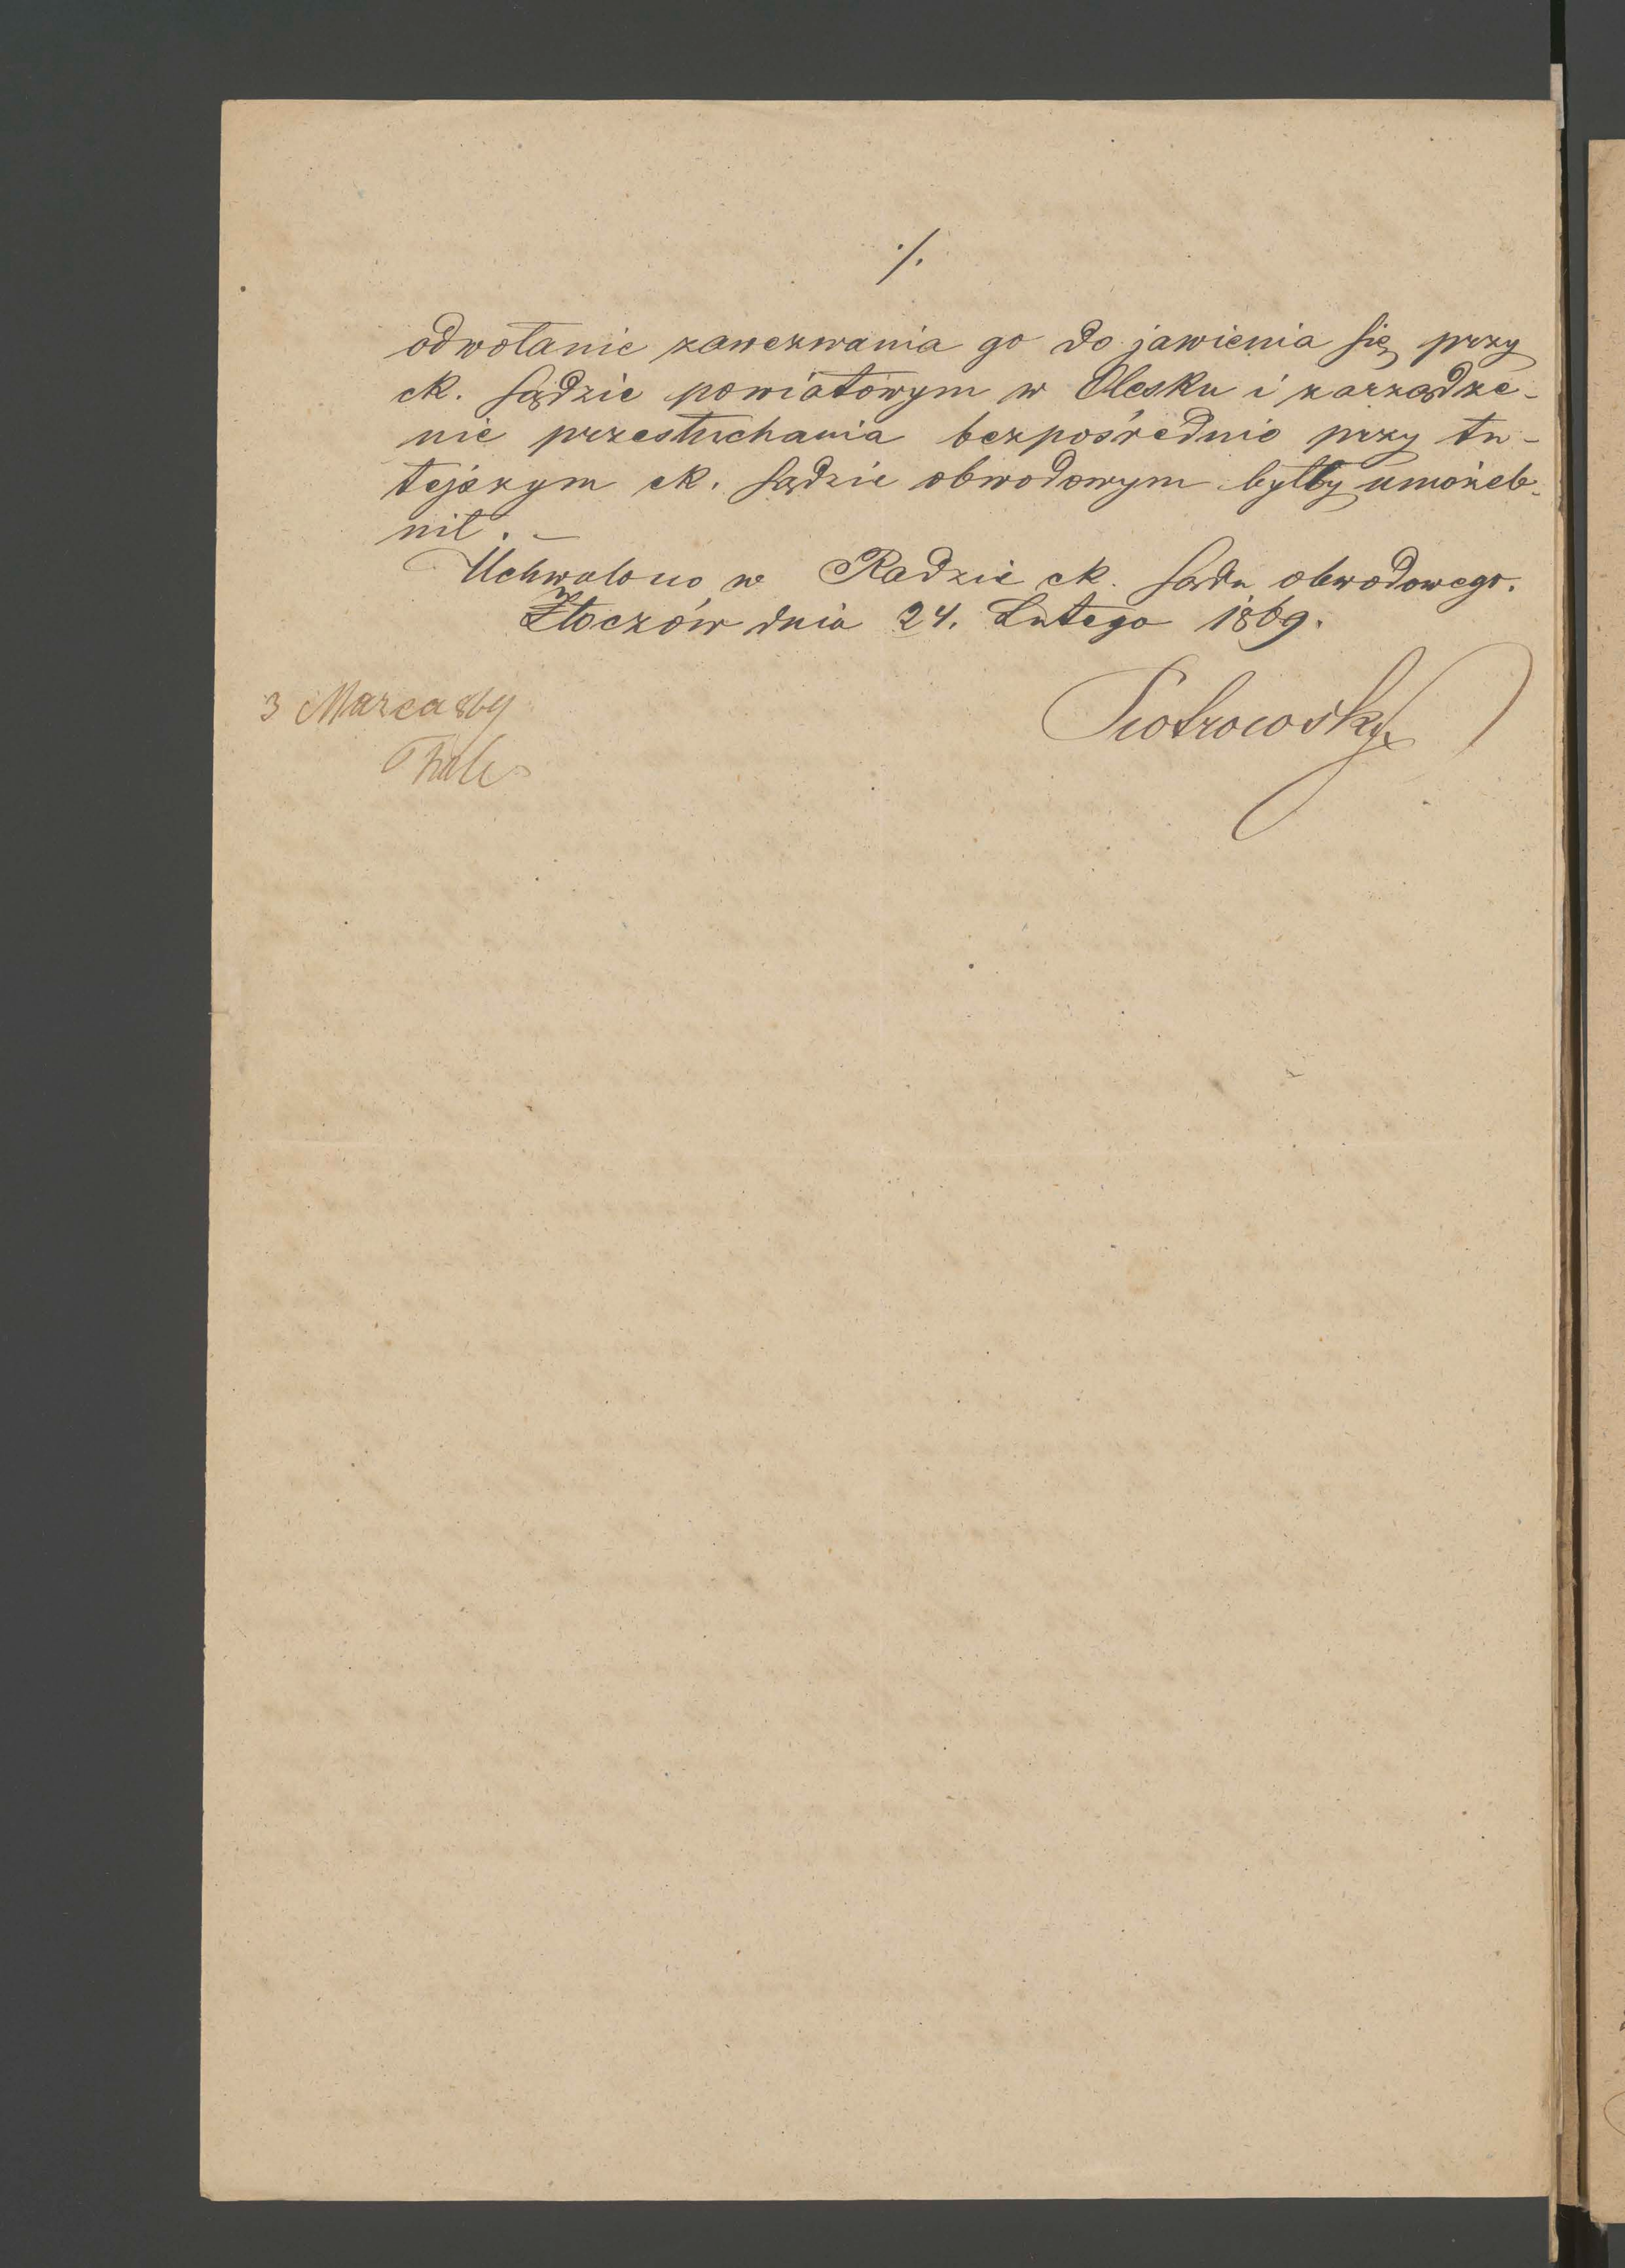 ./.
odwołanie zawezwania go do jawienia się przy
ck. sądzie powiatowym w Olesku i zarządze-
nie przesłuchania bezpośrednio przy tu-
tejszym ck. sądzie obwodowym byłby umożeb-
nił. —
Uchwalono w Radzie ck. sądu obwodowego.
Złoczów dnia 24. Lutego 1869.
3 Marca 869
Piotrowski